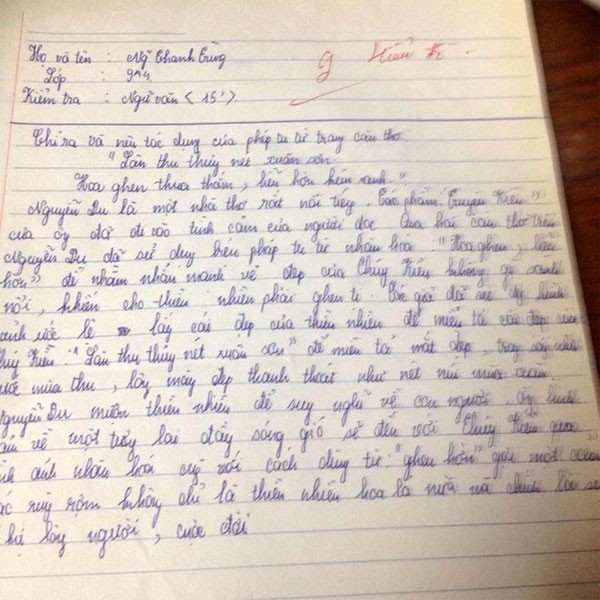 Họ và tên : Ngô Thanh Tùng
Lớp : 9A4
Kiểm tra : Ngữ văn < 15' >
9 Hiểu
Chỉ ra và nêu tác dụng của phép tu từ trong câu thơ
"Làn thu thủy nét xuân sơn
Hoa ghen thua thắm, liễu hờn kém xanh."
Nguyễn Du là một nhà thơ rất nổi tiếng. Tác phẩm "Truyện Kiều"
của ông đã đi vào tình cảm của người đọc. Qua hai câu thơ trên
Nguyễn Du đã sử dụng biện pháp tu từ nhân hóa "Hoa ghen, liễu
hờn" để nhằm nhấn mạnh vẻ đẹp của Thúy Kiều không gì sánh
nổi, khiến cho thiên nhiên phải ghen tị. Tác giả đã sử dụng hình
ảnh ước lệ lấy cái đẹp của thiên nhiên để miêu tả cái đẹp của
Thúy Kiều. "Làn thu thủy nét xuân sơn" để miêu tả mắt đẹp, trong sáng như
nước mùa thu, lông mày đẹp thanh thoát như nét núi mùa xuân.
Nguyễn Du mượn thiên nhiên để suy nghĩ về con người. Ông
về một tương lai đầy sóng gió sẽ đến với Thúy Kiều qua
hình ảnh nhân hoá cùng với cách dùng từ "ghen hờn" gợi một
giác rùng rợn không chỉ là thiên nhiên hoa lá nữa mà chính là sự
lòng người, cuộc đời